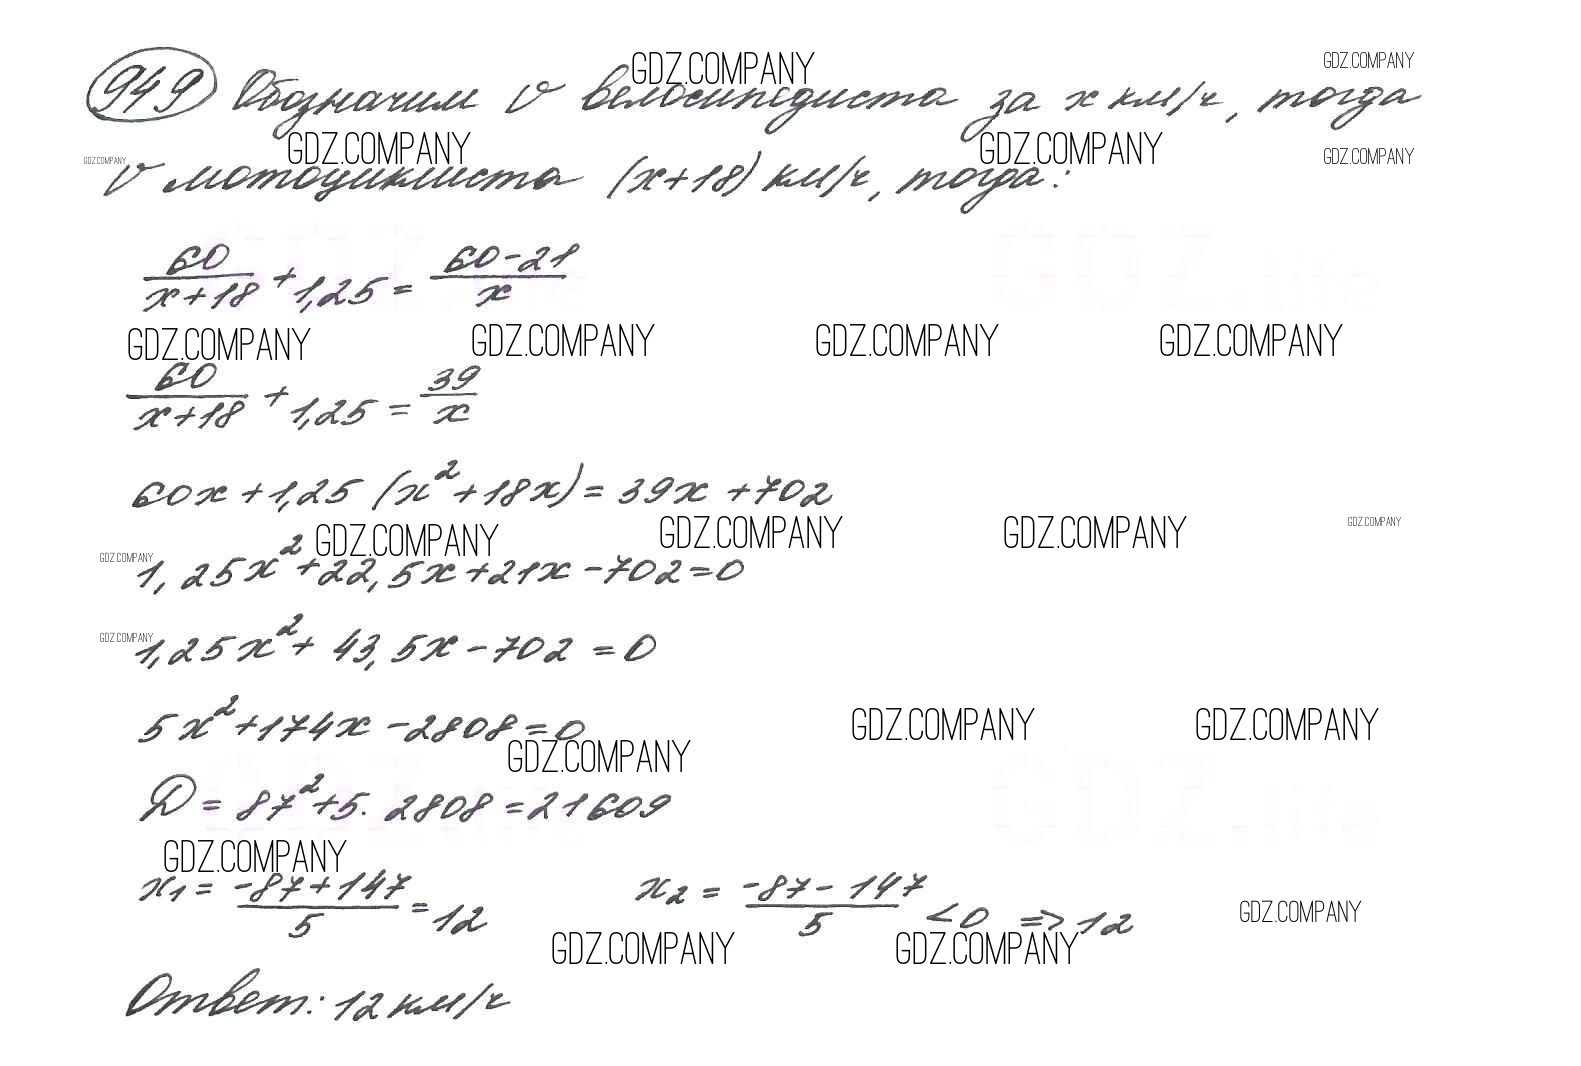 GDZ.COMPANY GDZ.COMPANY
949 Обозначим v велосипедиста за x км/ч, тогда
GDZ.COMPANY GDZ.COMPANY GDZ.COMPANY GDZ.COMPANY
v мотоциклиста (x+18) км/ч, тогда:
60/(x+18) + 1,25 = (60-21)/x
GDZ.COMPANY GDZ.COMPANY GDZ.COMPANY GDZ.COMPANY
60/(x+18) + 1,25 = 39/x
60x + 1,25 (x² + 18x) = 39x + 702
GDZ.COMPANY GDZ.COMPANY GDZ.COMPANY GDZ.COMPANY GDZ.COMPANY
1,25x² + 22,5x + 21x - 702 = 0
GDZ.COMPANY
1,25x² + 43,5x - 702 = 0
5x² + 174x - 2808 = 0
GDZ.COMPANY GDZ.COMPANY GDZ.COMPANY
D = 87² + 5·2808 = 21609
GDZ.COMPANY
x₁ = (-87+147)/5 = 12 x₂ = (-87-147)/5 < 0 => 12
GDZ.COMPANY GDZ.COMPANY GDZ.COMPANY
Ответ: 12 км/ч